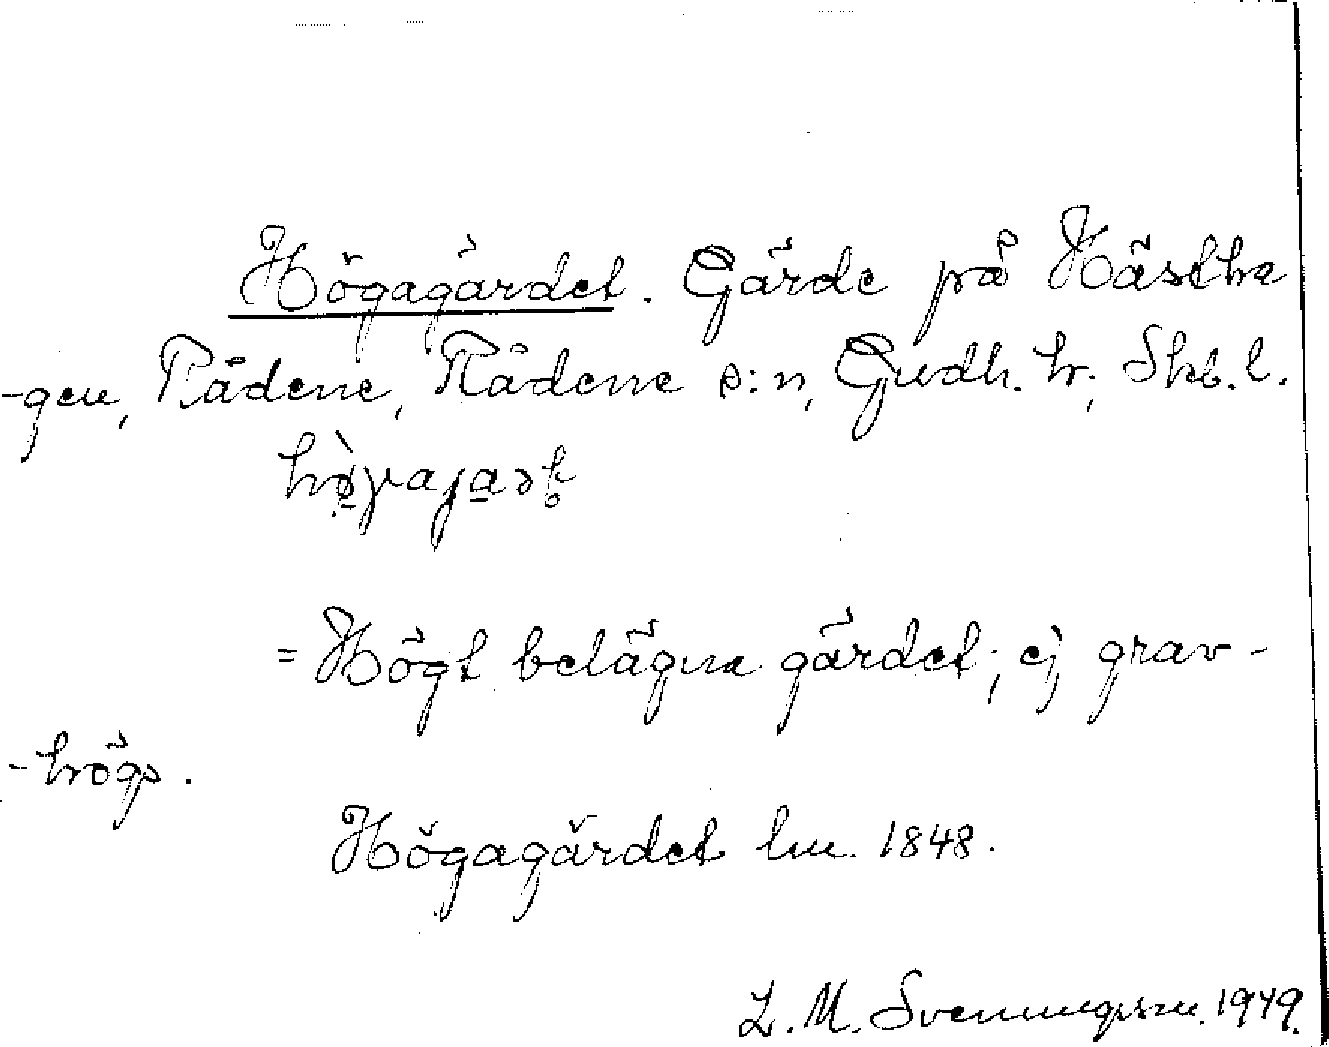 Högagärdet. Gärde på Hästha
-gen, Rådene, Rådene s:n, Gudh. hr., Skb. l.
= Högt belägna gärdet; ej grav-
-högs.
Högagärdet lm. 1848.
L. M. Svenungsson. 1949.